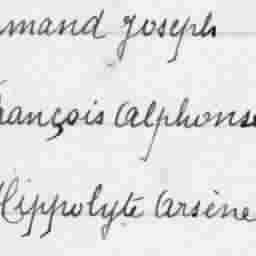 mand Joseph
rançois Alphonse
Hippolyte Arsène